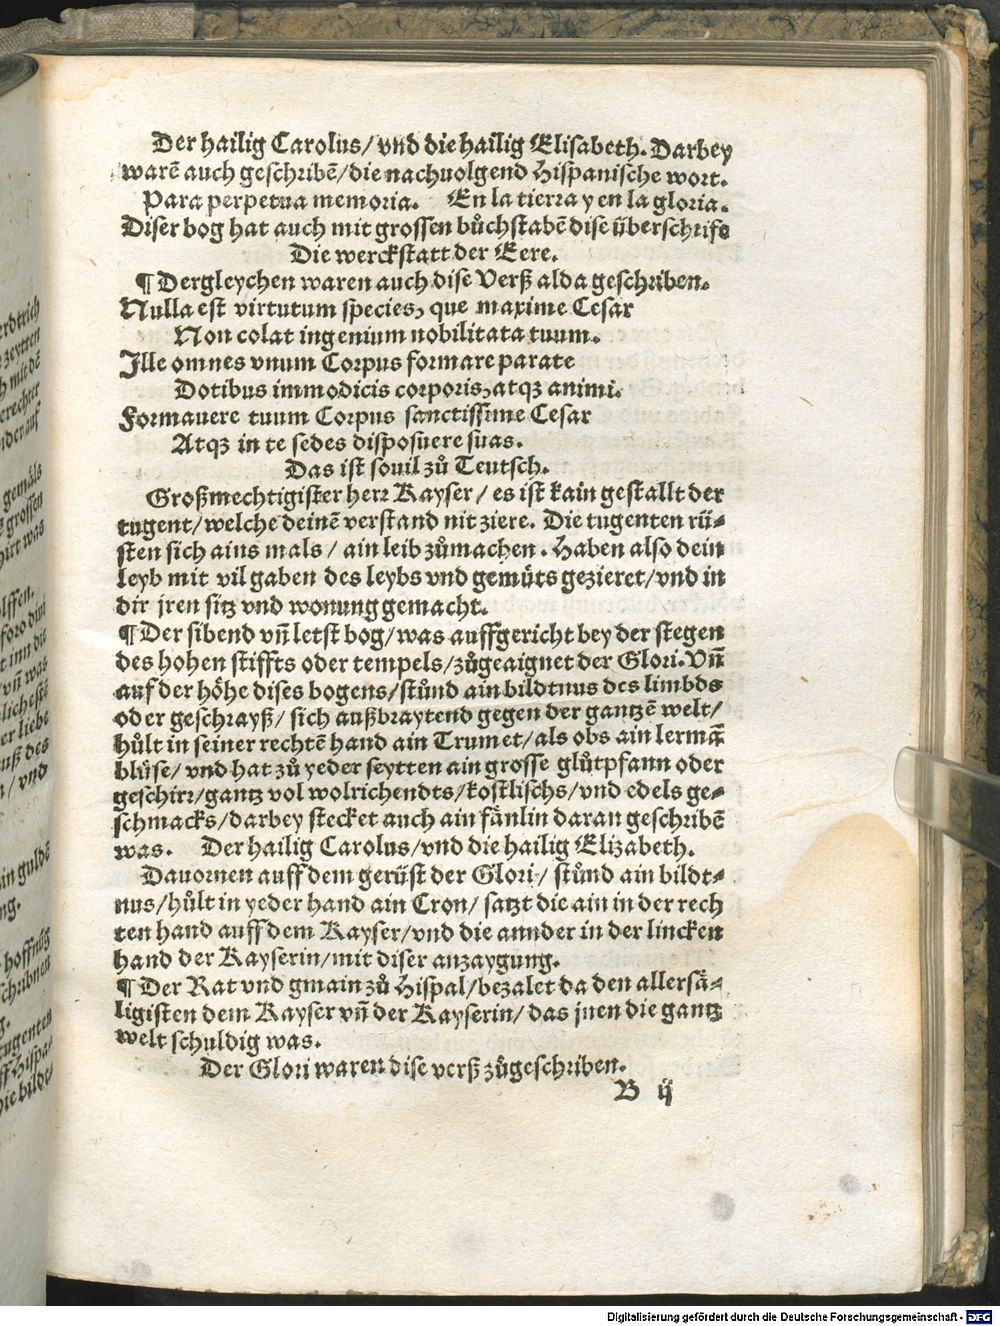 Der hailig Carolus/ vnd die hailig Elisabeth. Darbey
warẽ auch geschribẽ/ die nachuolgend Hispanische wort.
Para perpetua memoria. En la tierra y en la gloria.
Diser bog hat auch mit grossen bůchstabẽ dise überschrifft
Die werckstatt der Eere.
¶ Dergleychen waren auch dise Verß alda geschriben.
Nulla est virtutum species, que maxime Cesar
Non colat ingenium nobilitata tuum.
Ille omnes vnum Corpus formare parate
Dotibus immodicis corporis, atqꝫ animi.
Formauere tuum Corpus sanctissime Cesar
Atqꝫ in te sedes disposuere suas.
Das ist souil zů Teutsch.
Großmechtigister herr Kayser/ es ist kain gestallt der
tugent/ welche deinẽ verstand nit ziere. Die tugenten rü-
sten sich ains mals/ ain leib zůmachen. Haben also dein
leyb mit vil gaben des leybs vnd gemüts gezieret/ vnd in
dir jren sitz vnd wonung gemacht.
¶ Der sibend vñ letst bog/ was auffgericht bey der stegen
des hohen stiffts oder tempels/ zůgeaignet der Glori. Vñ
auf der höhe dises bogens/ stůnd ain bildtnus des limbds
oder geschrayß/ sich außbraytend gegen der gantzẽ welt/
hůlt in seiner rechtẽ hand ain Trumet/ als obs ain lermã
blüse/ vnd hat zů yeder seytten ain grosse glůtpfann oder
geschirr/ gantz vol wolrichendts/ kostlischs/ vnd edels ge-
schmacks/ darbey stecket auch ain fänlin daran geschribẽ
was. Der hailig Carolus/ vnd die hailig Elizabeth.
Dauornen auff dem gerüst der Glori/ stůnd ain bildt-
nus/ hůlt in yeder hand ain Cron/ satzt die ain in der rech
ten hand auff dem Kayser/ vnd die annder in der lincken
hand der Kayserin/ mit diser anzaygung.
¶ Der Rat vnd gmain zů Hispal/ bezalet da den allersä-
ligisten dem Kayser vñ der Kayserin/ das jnen die gantz
welt schuldig was.
Der Glori waren dise verß zůgeschriben.
B ij
Digitalisierung gefördert durch die Deutsche Forschungsgemeinschaft - DFG